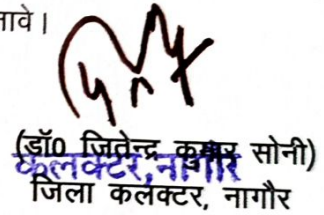 नावे।
(डॉ0 जितेन्द्र कुमार सोनी)
कलक्टर, नागौर
जिला कलक्टर, नागौर